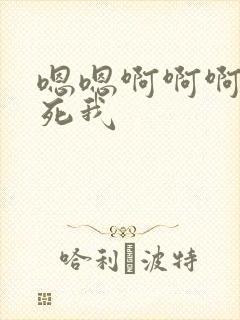 嗯嗯啊啊啊
死我
哈利�波特